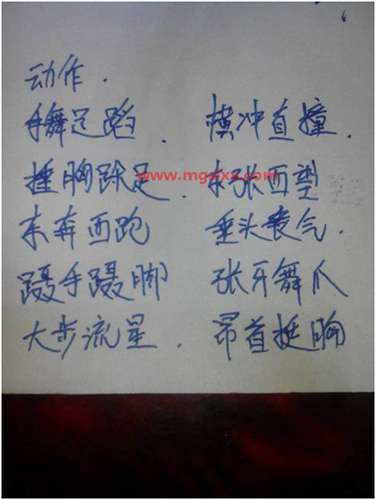 动作.
手舞足蹈. 横冲直撞.
捶胸跺足. 东张西望
www.mgsxz.com
东奔西跑 垂头丧气.
蹑手蹑脚 张牙舞爪
大步流星. 昂首挺胸